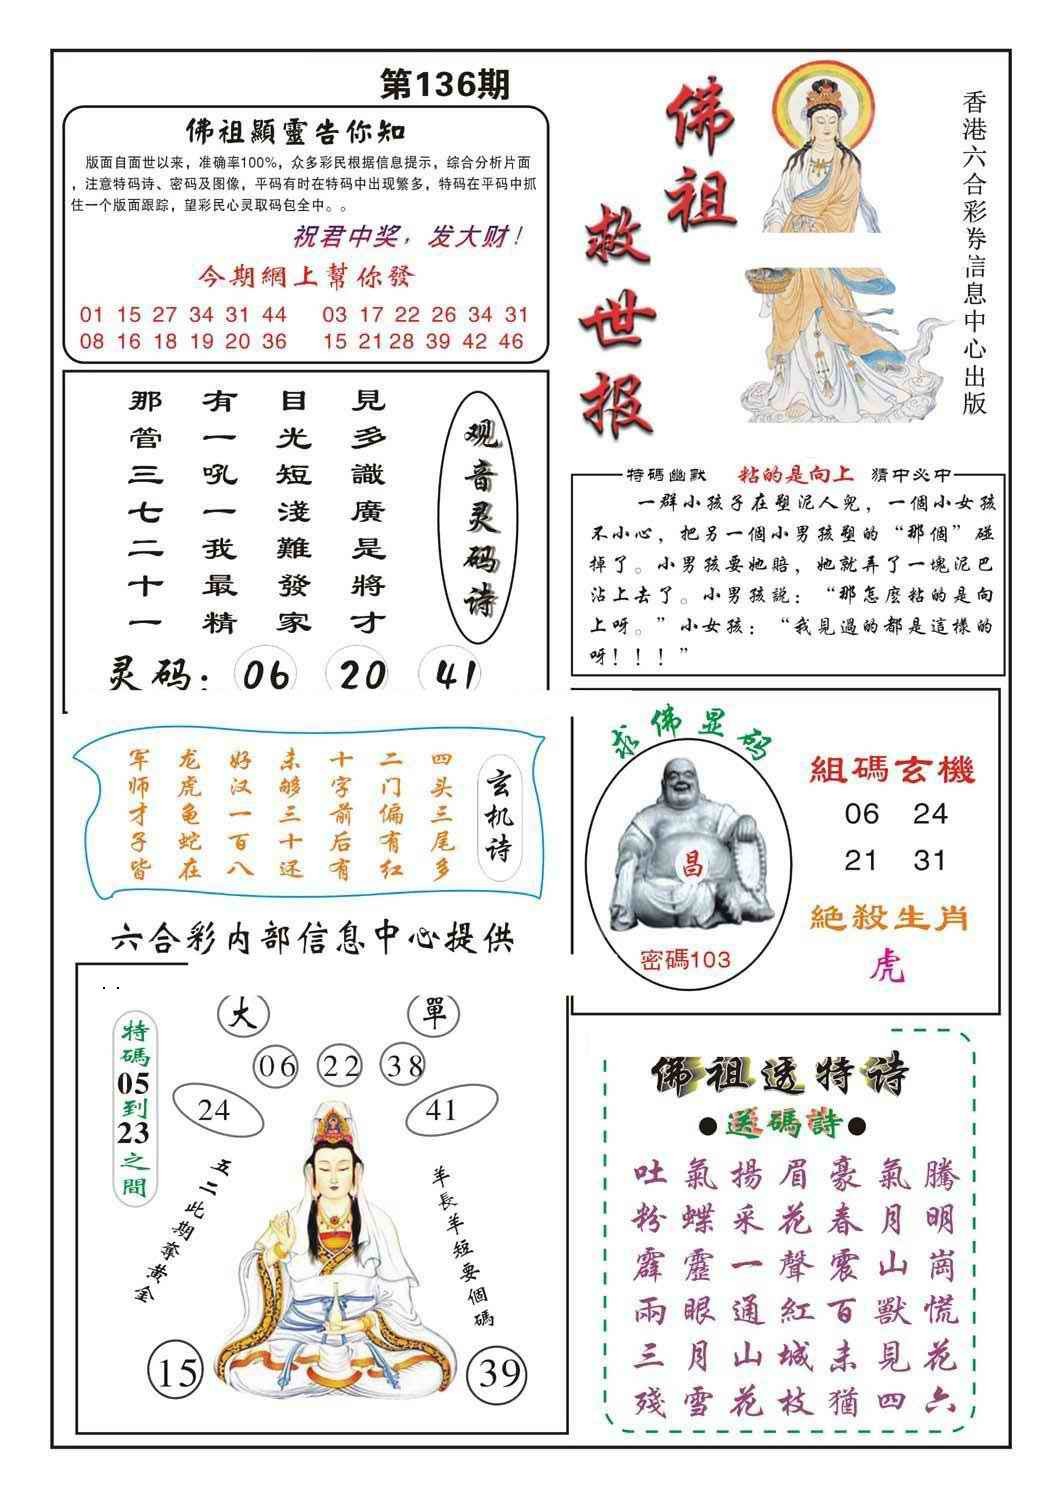 第136期
佛祖顯靈告你知
版面自面世以来，准确率100%，众多彩民根据信息提示，综合分析片面
，注意特码诗、密码及图像，平码有时在特码中出现繁多，特码在平码中抓
住一个版面跟踪，望彩民心灵取码包全中。。
祝君中奖，发大财！
今期網上幫你發
01 15 27 34 31 44 03 17 22 26 34 31
08 16 18 19 20 36 15 21 28 39 42 46
佛祖
救世报
香港六合彩券信息中心出版
观音灵码诗
見多識廣是將才
目光短淺難發家
有一吼一我最精
那管三七二十一
灵码：06 20 41
特碼幽默 粘的是向上 猜中必中
一群小孩子在塑泥人兒，一個小女孩
不小心，把另一個小男孩塑的“那個”碰
掉了。小男孩要她賠，她就弄了一塊泥巴
沾上去了。小男孩説：“那怎麽粘的是向
上呀。”小女孩：“我見過的都是這樣的
呀！！！”
玄机诗
四头三尾多
二门偏有红
十字前后有
未够三十还
好汉一百八
龙虎龟蛇在
军师才子皆
六合彩内部信息中心提供
求佛显码
昌
密碼103
組碼玄機
06 24
21 31
絕殺生肖
虎
..
大 單
06 22 38
24 41
特碼05到23之間
五二此期奪黃金
羊長羊短要個碼
15 39
佛祖透特诗
●送碼詩●
吐氣揚眉豪氣騰
粉蝶采花春月明
霹靂一聲震山崗
兩眼通紅百獸慌
三月山城未見花
殘雪花枝猶四六